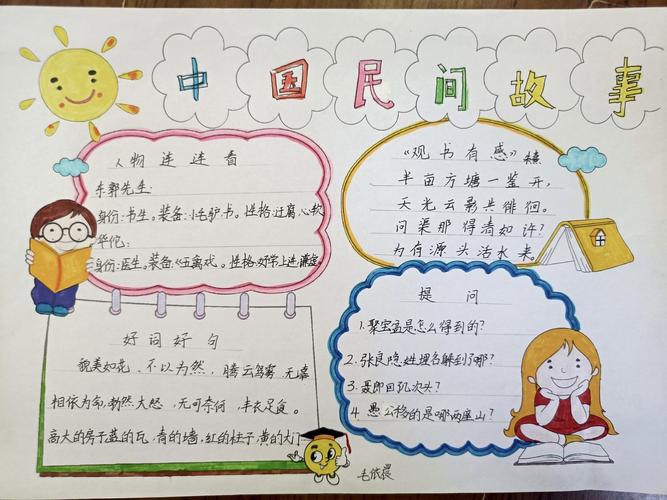 中国民间故事
人物连连看
东郭先生:
身份:书生。装备:小毛驴、书。性格:迂腐、心软
华佗:
身份:医生。装备:《五禽戏》。性格:好学上进、谦虚。
《观书有感》
半亩方塘一鉴开,
天光云影共徘徊。
问渠那得清如许?
为有源头活水来。
好词好句
貌美如花、不以为然、腾云驾雾、无
相依为命、勃然大怒、无可奈何、丰衣足食。
高大的房子蓝的瓦,青的墙,红的柱子,黄的大门
提问
1.聚宝盆是怎么得到的?
2.张良隐姓埋名躲到了哪?
3.聂郎回几次头?
4.愚公移的是哪两座山?
毛依晨